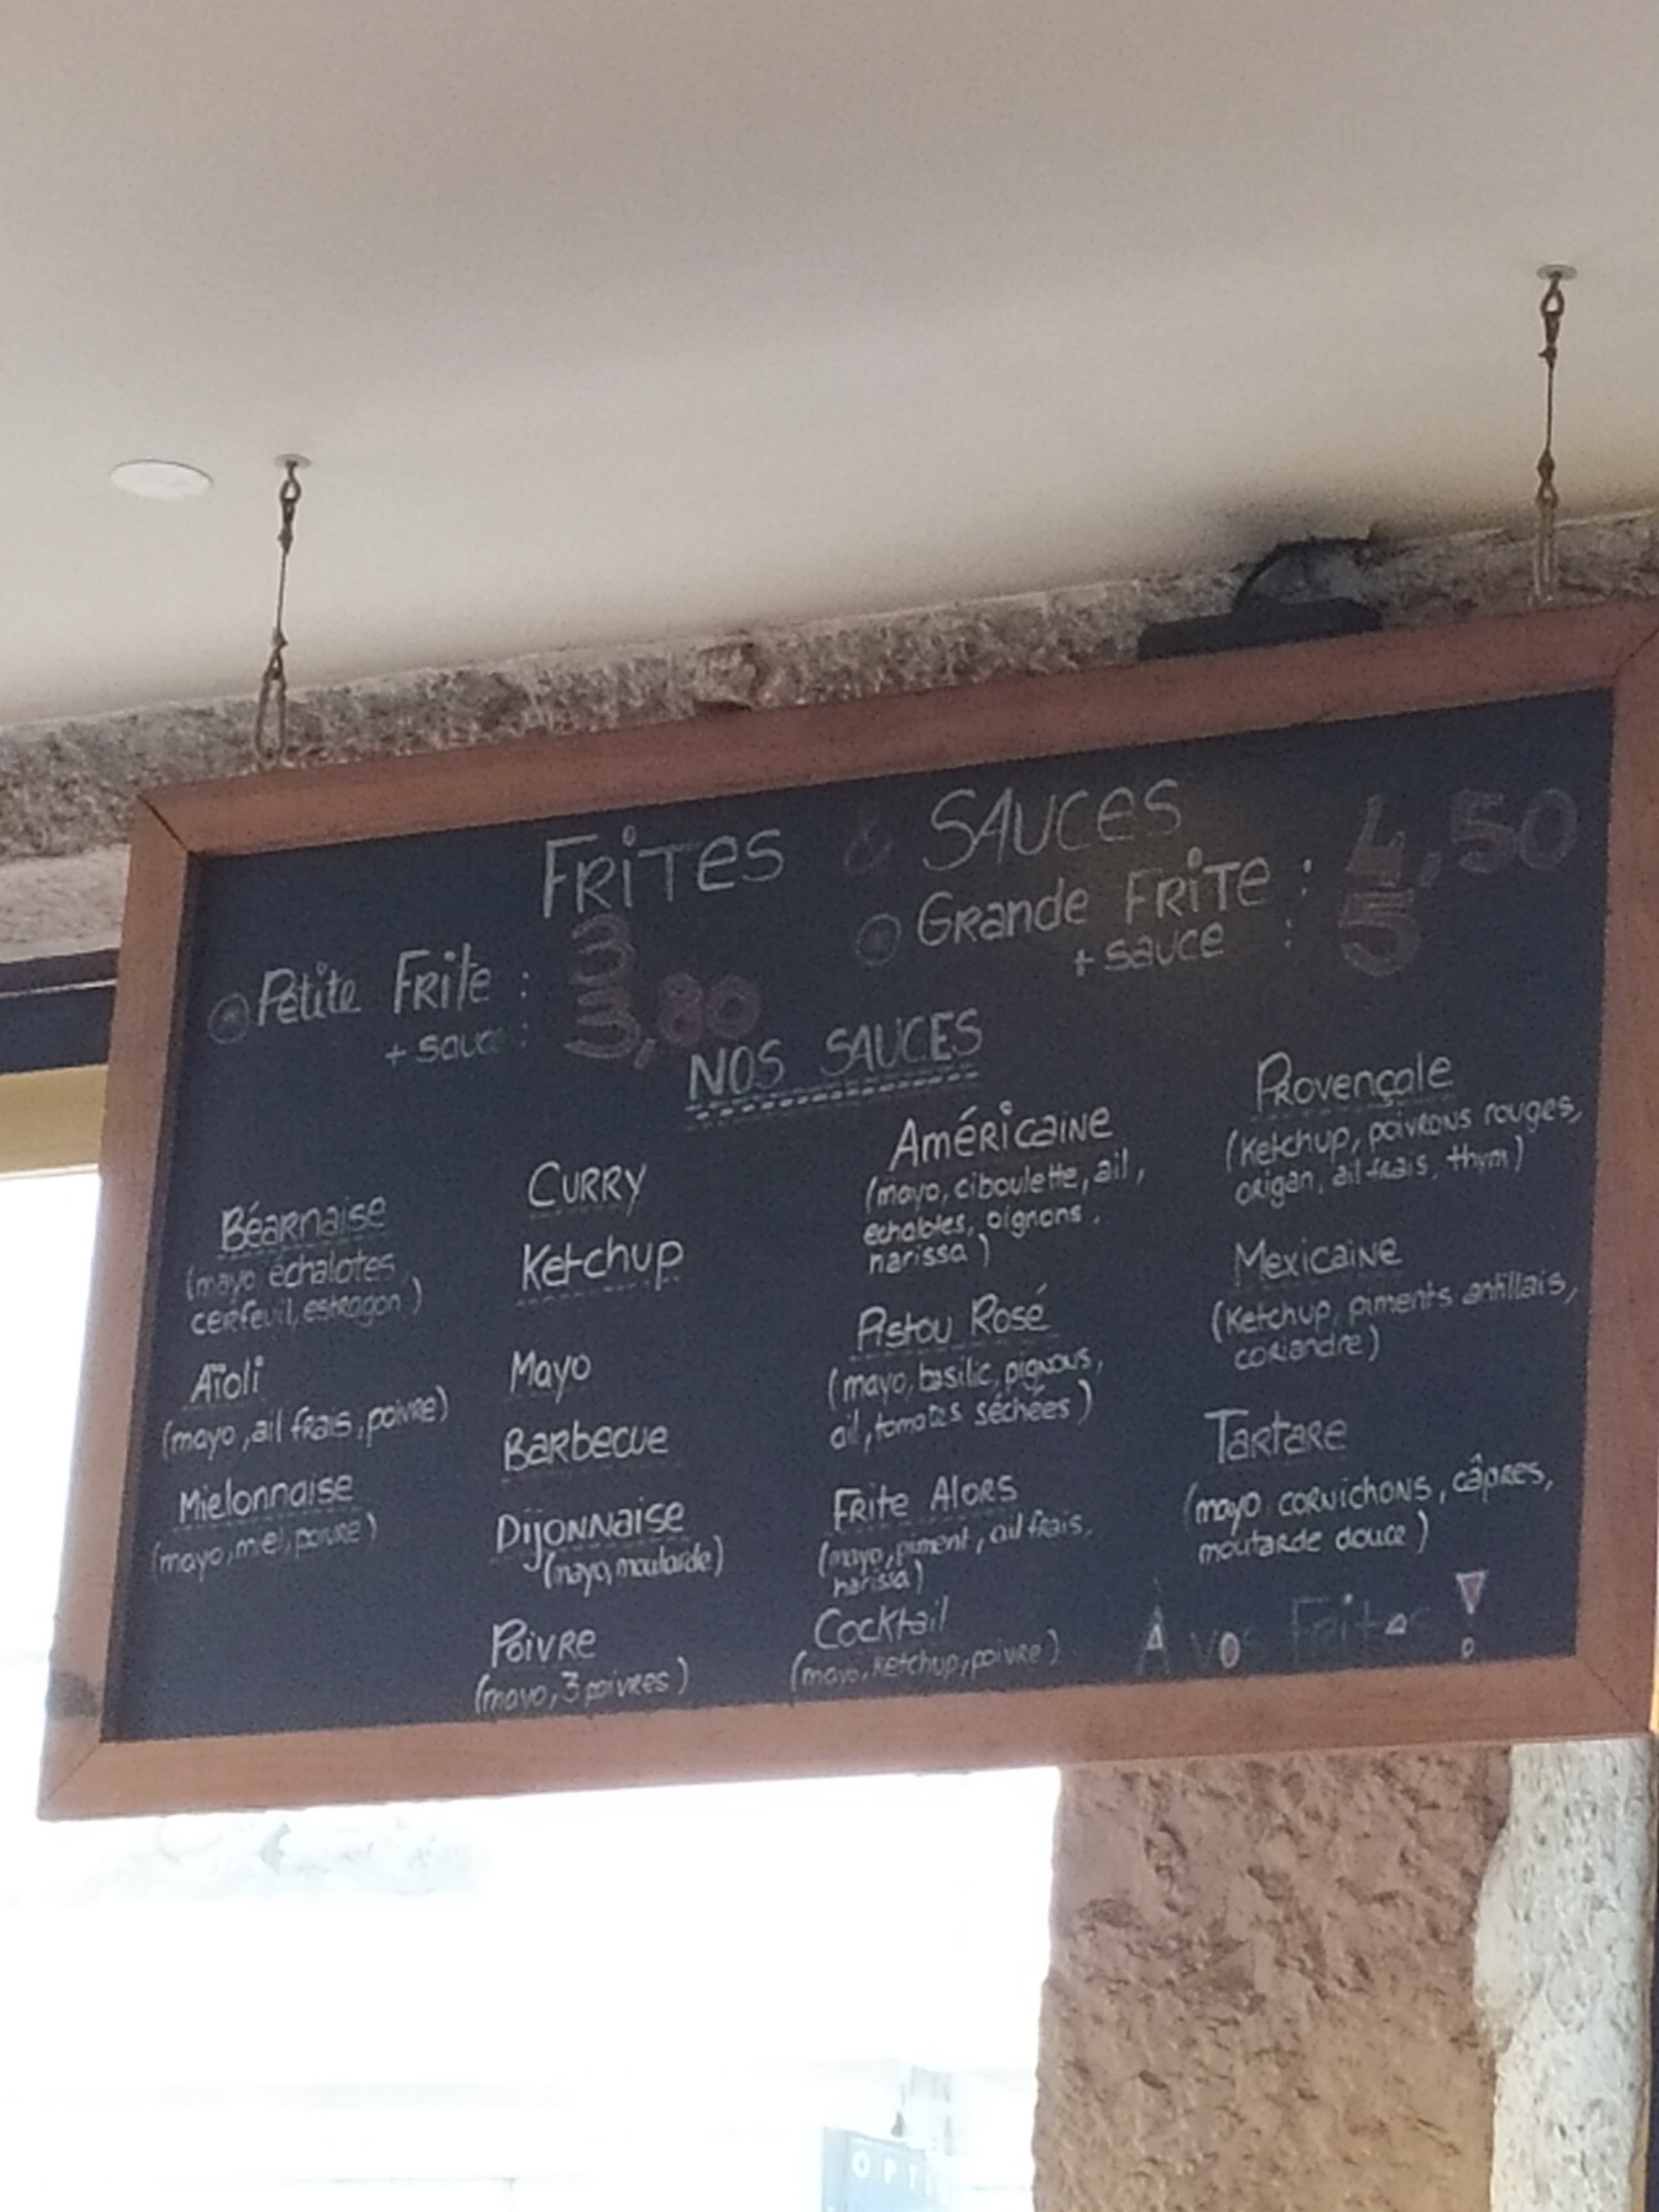 FRiTES & SAUCES
Petite Frite : 3
+ sauce : 3,80
Grande FRiTe : 4,50
+ sauce : 5
NOS SAUCES
Béarnaise
(mayo échalotes
cerfeuil, estragon)
Aïoli
(mayo, ail frais, poivre)
Mielonnaise
(mayo, miel, poivre)
CURRY
Ketchup
Mayo
Barbecue
Dijonnaise
(mayo, moutarde)
Poivre
(mayo, 3 poivres)
Américaine
(mayo, ciboulette, ail,
echalotes, oignons,
harissa)
Pistou Rosé
(mayo, basilic, pignons,
ail, tomates séchées)
Frite Alors
(mayo, piment, ail frais,
harissa)
Cocktail
(mayo, ketchup, poivre)
Provençale
(Ketchup, poivrons rouges,
origan, ail frais, thym)
Mexicaine
(Ketchup, piments antillais,
coriandre)
Tartare
(mayo cornichons, câpres,
moutarde douce)
A vos Frites !